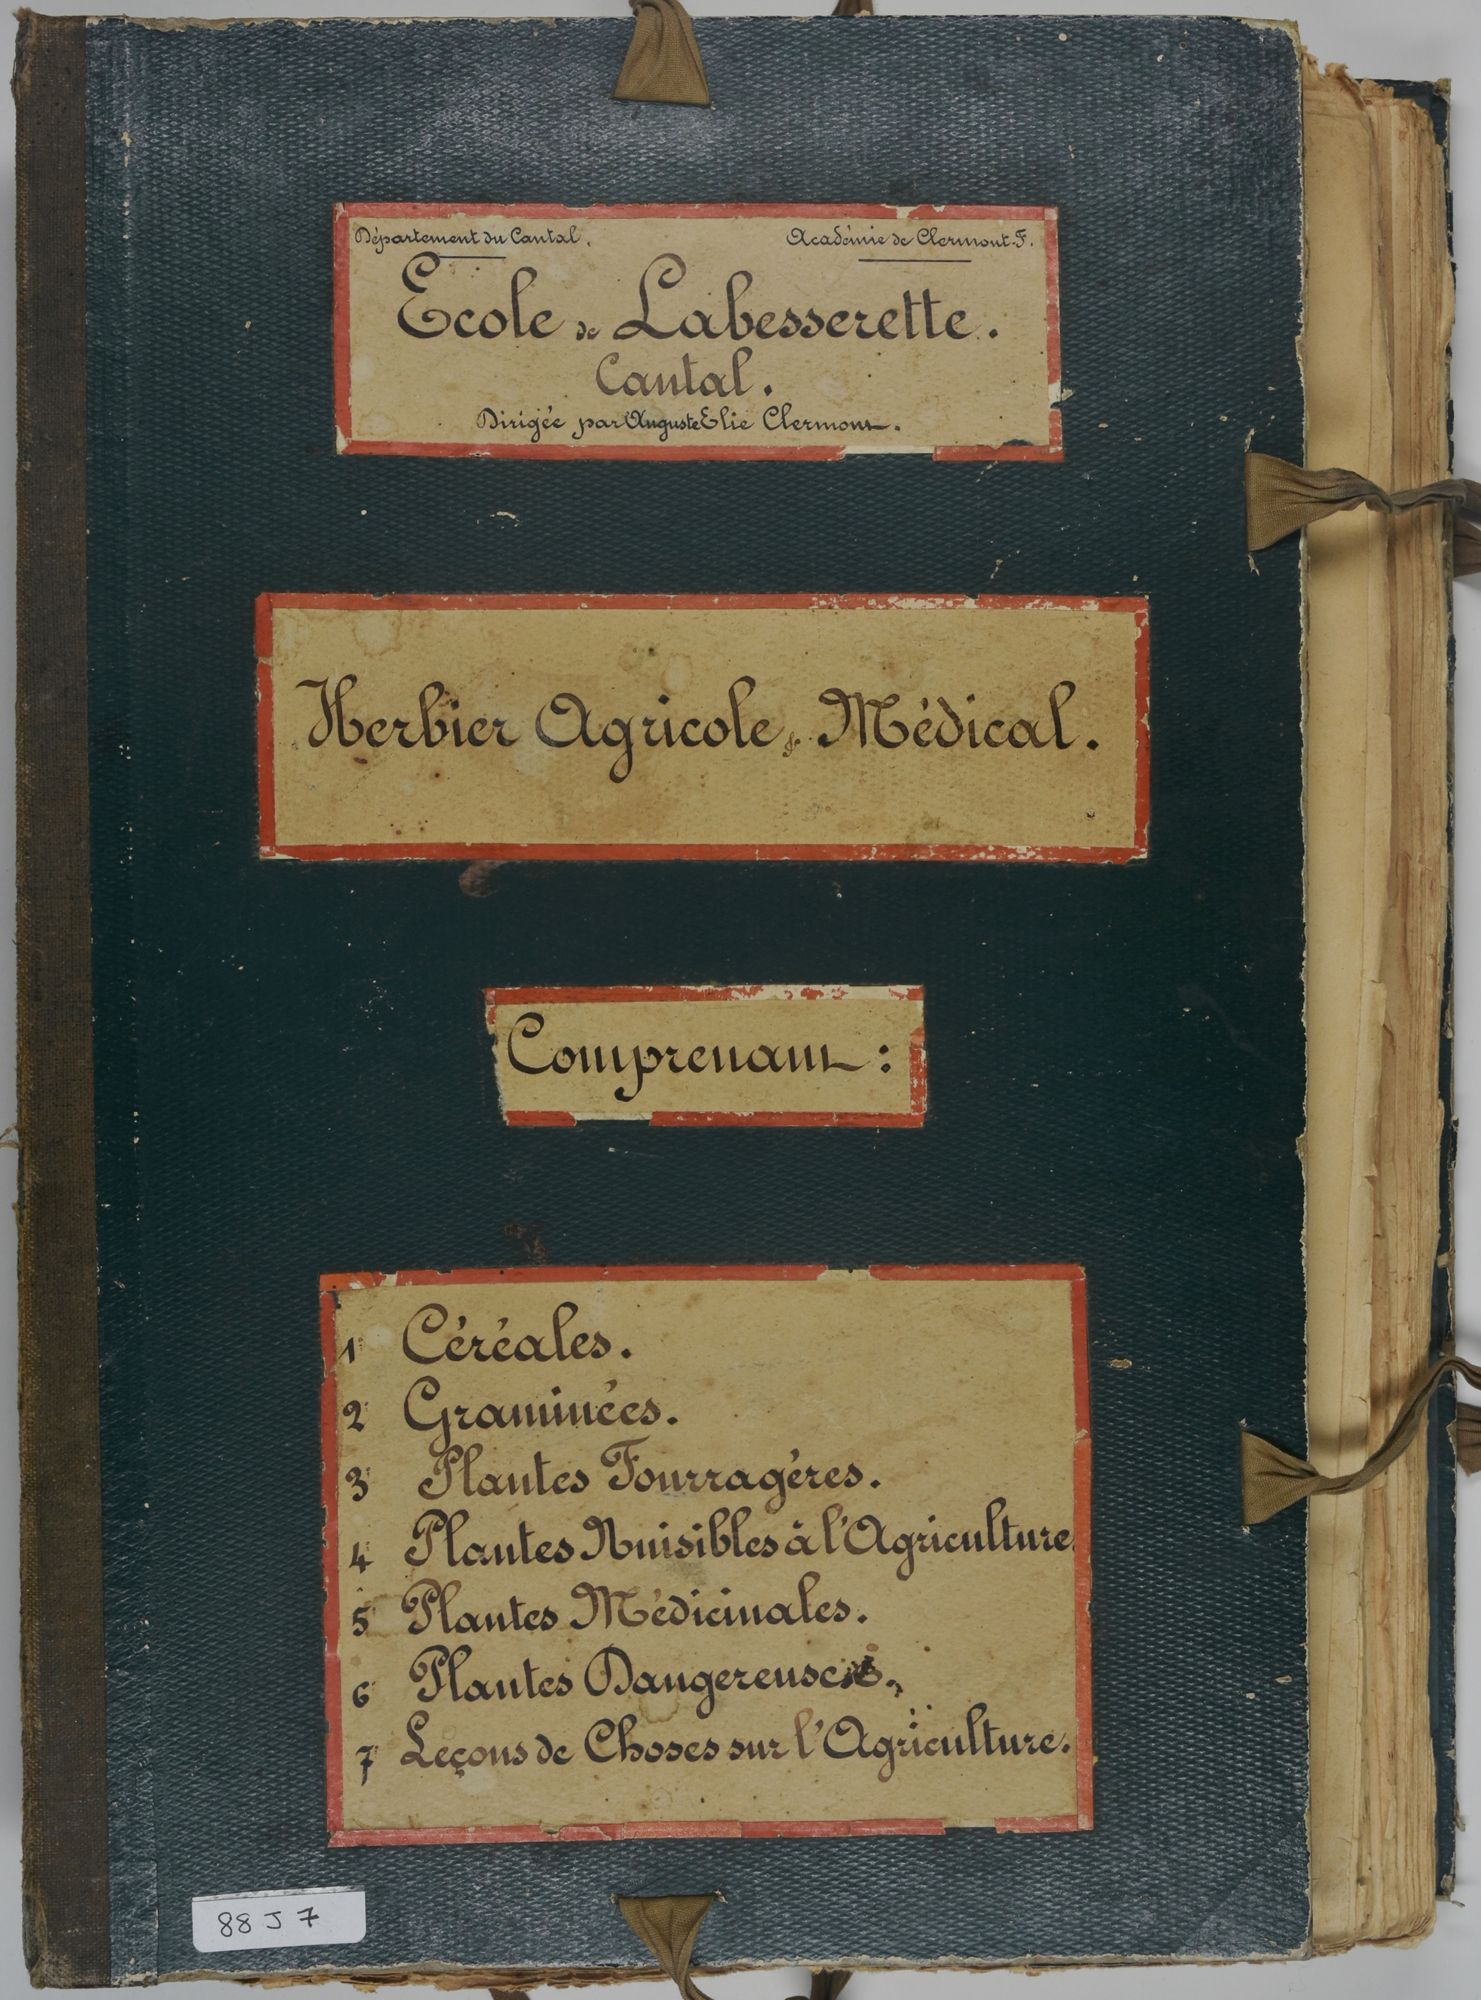 Département du Cantal.
Académie de Clermont-F.
Ecole de Labesserette.
Cantal.
Dirigée par Auguste Elie Clermont.
Herbier Agricole & Médical.
Comprenant :
1 Céréales.
2 Graminées.
3 Plantes Fourragères.
4 Plantes Nuisibles à l'Agriculture.
5 Plantes Médicinales.
6 Plantes Dangereuses.
7 Leçons de Choses sur l'Agriculture.
88 J 7